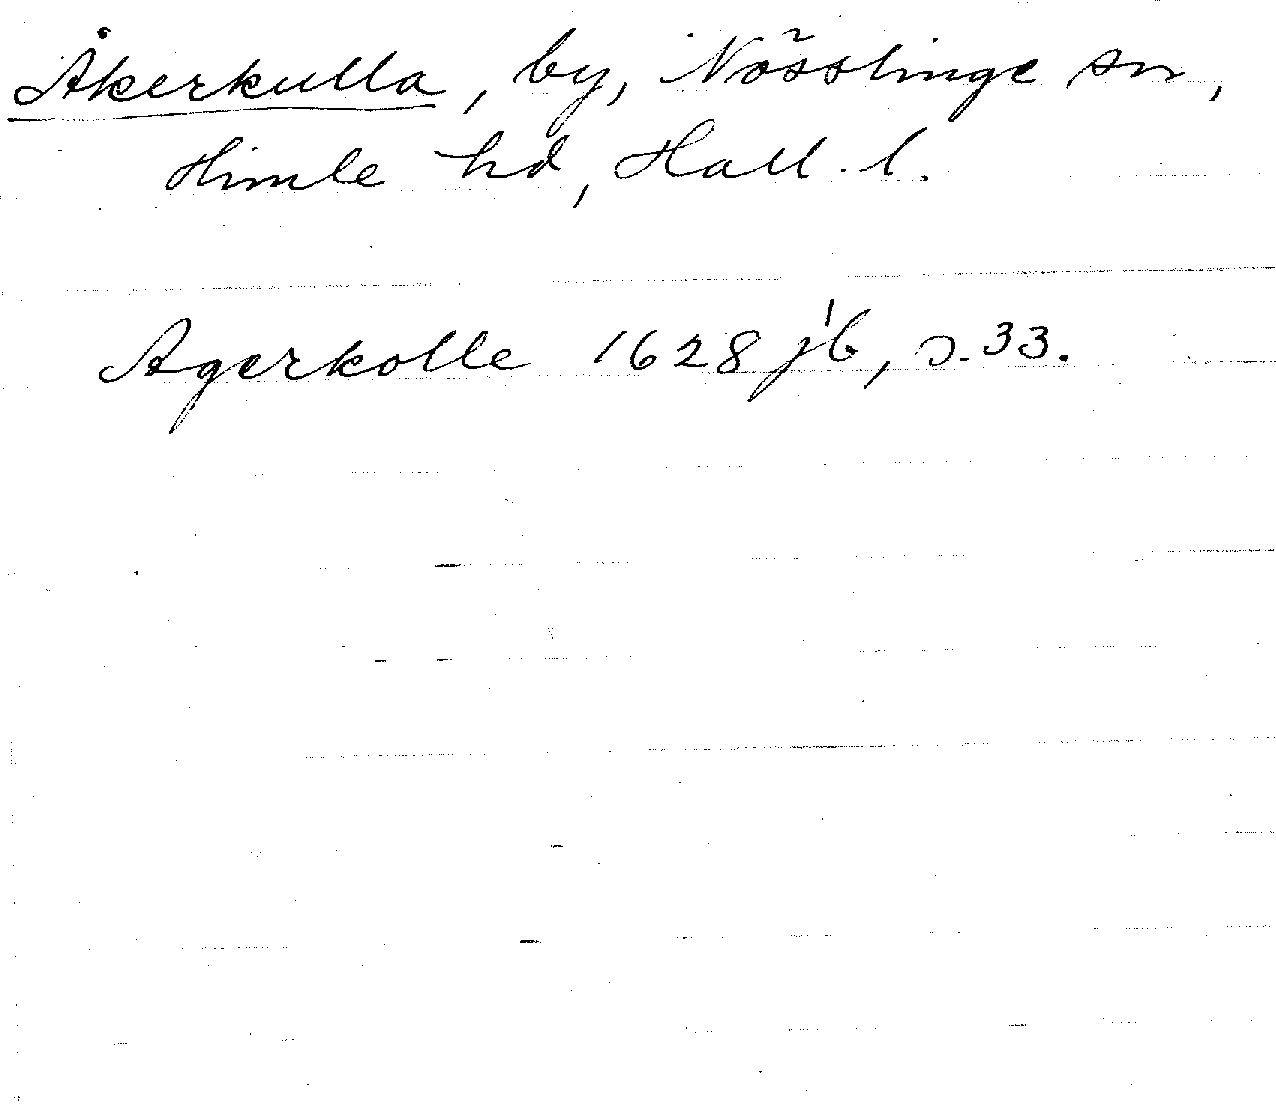 Åkerkulla, by, Nösslinge sn,
Himle hd, Hall. l.
Agerkolle 1628 jb, s. 33.